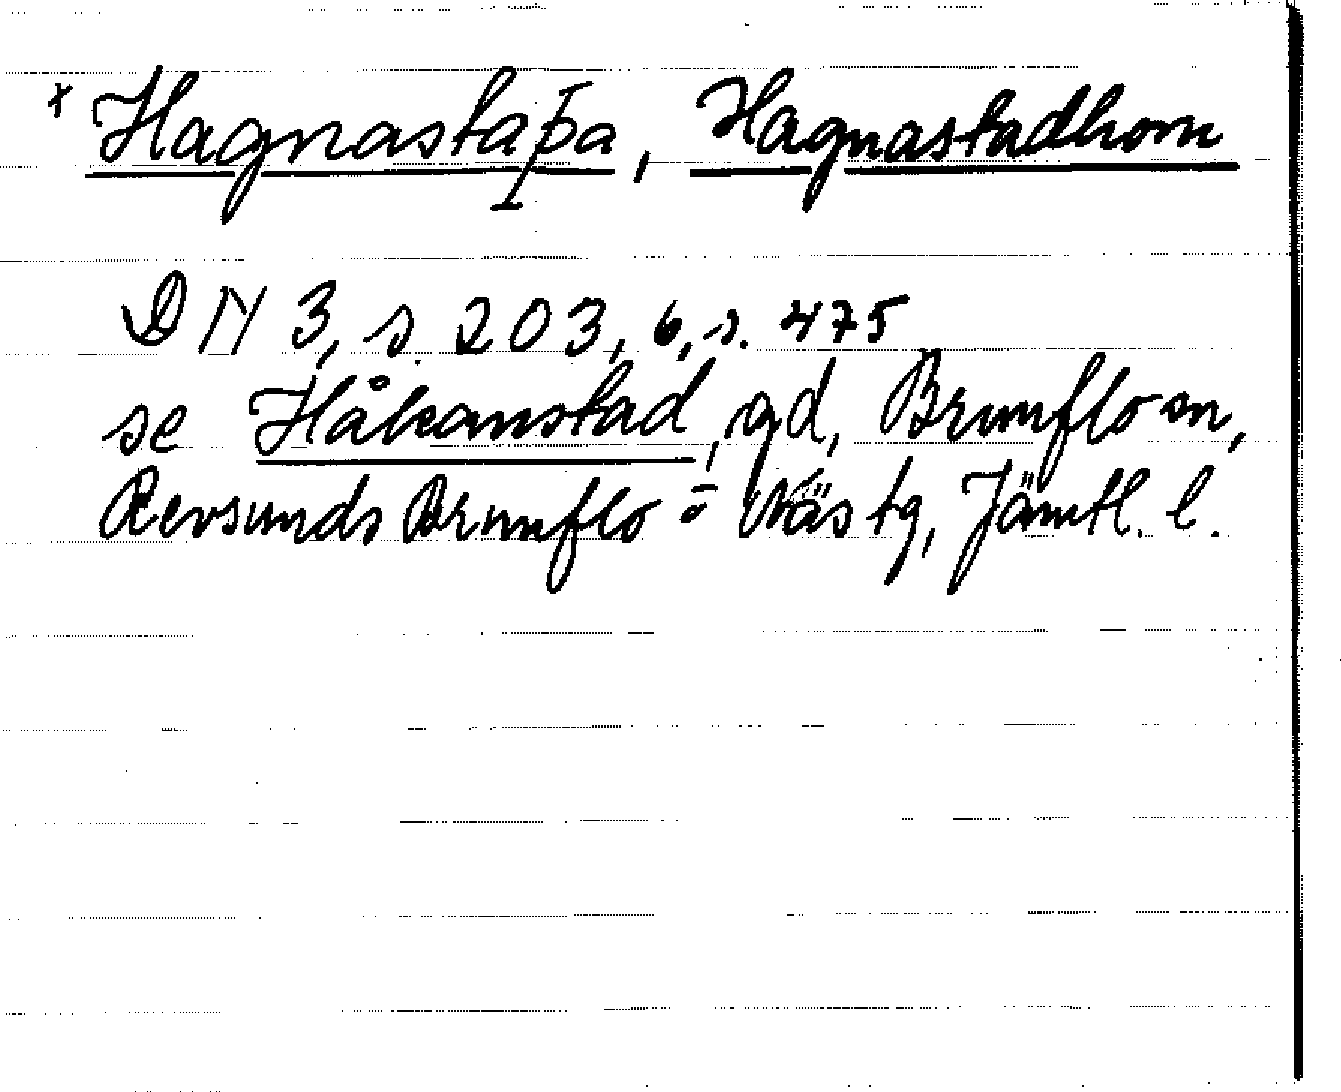 x Hagnastaþa, Hagnastadhom
DN 3, s. 203, 6, s. 475
se Håkanstad, gd, Brunflo sn,
Revsunds Brunflo o Näs tg, Jämtl. l.